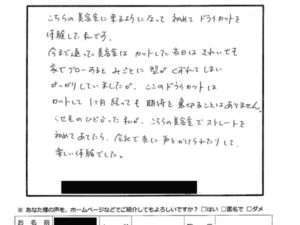 こちらの美容室に来るようになって 初めて ドライカットを
体験した私です。
今まで通っていた美容室は カットした当日は きれいでも
家でブローすると みごとに 型が くずれてしまい
がっかりしていましたが、ここのドライカットは
カットして 1ヶ月経っても 期待を裏切ることはありません。
くせもの ひどかった 私が、こちらの美容室で ストレートを
初めて あてたら、会社で 声をかけられたりして、
楽しい体験でした。
※ あなた様の声を、ホームページなどでご紹介してもよろしいですか? □はい □匿名で □ダメ
お 名 前